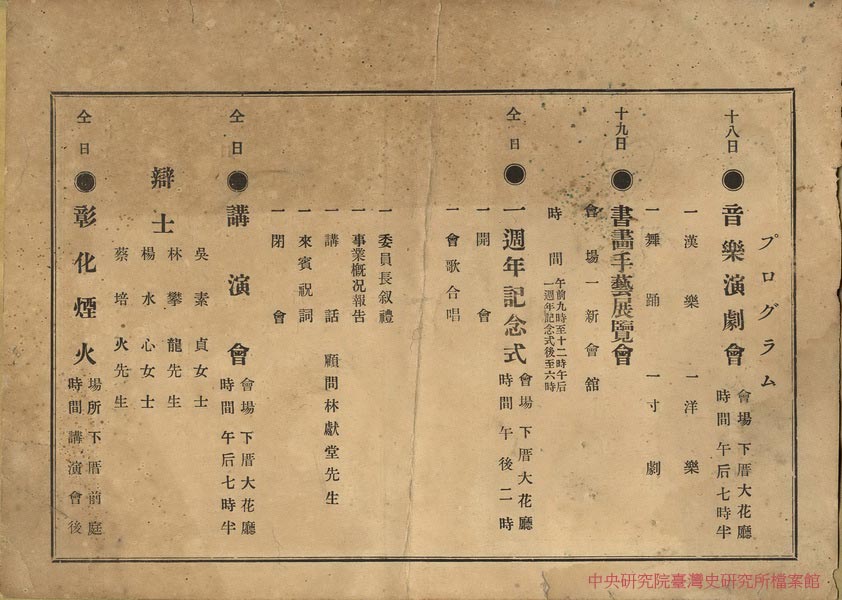 プログラム
十八日 ●音樂演劇會 會場 下厝大花廳
時間 午后七時半
一漢樂 一洋樂
一舞踊 一寸劇
十九日 ●書畵手藝展覽會
會場 一新會舘
時間 午前九時至十二時午后
一週年記念式後至六時
仝日 ●一週年記念式 會場 下厝大花廳
時間 午後二時
一開會
一會歌合唱
一委員長叙禮
一事業概况報告
一講話 顧問林獻堂先生
一來賓祝詞
一閉會
仝日 ●講演會 會場 下厝大花廳
時間 午后七時半
吳素貞女士
辯士 林攀龍先生
楊水心女士
蔡培火先生
仝日 ●彰化煙火 場所 下厝前庭
時間 講演會後
中央研究院臺灣史研究所檔案館